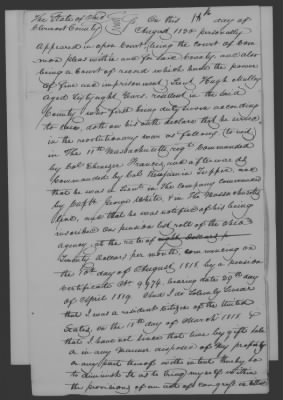 The State of Ohio
Clermont County Ss. On this 18th day of
August 1820 personally
appeared in open Court, being the Court of Com
mon pleas within and for said County and also
being a Court of record which hath the power
of fine and imprisonment, Lieut Hugh Mulloy
aged sixty eight years, resident in the said
County, who first being duly sworn according
to law, doth on his oath declare that he served
in the revolutionary war as follows, (to wit)
in The 11th Massachusetts, regt Commanded
by Col Ebenezer Francis and afterwards
Commanded by Col Benjamin Tupper, and
that he was a Lieut in the Company commanded
by Capt George White in the Massachusetts
line, and that he was notified of his being
inscribed on pension list roll of the Ohio
agency, at the rate of eight Dollars p
Twenty dollars per month, commencing on
the 10th day of August 1818 by a pension
certificate No 9,974 bearing date 29th day
of April 1819 And I do Solemnly Swear
that I was a resident Citizen of the United
States, on the 18th day of March 1818 &
that I have not since that time by gift sale
or in any manner disposed of my property
or any part thereof with intent thereby so
to diminish it as to bring myself within
the provisions of an act of congress